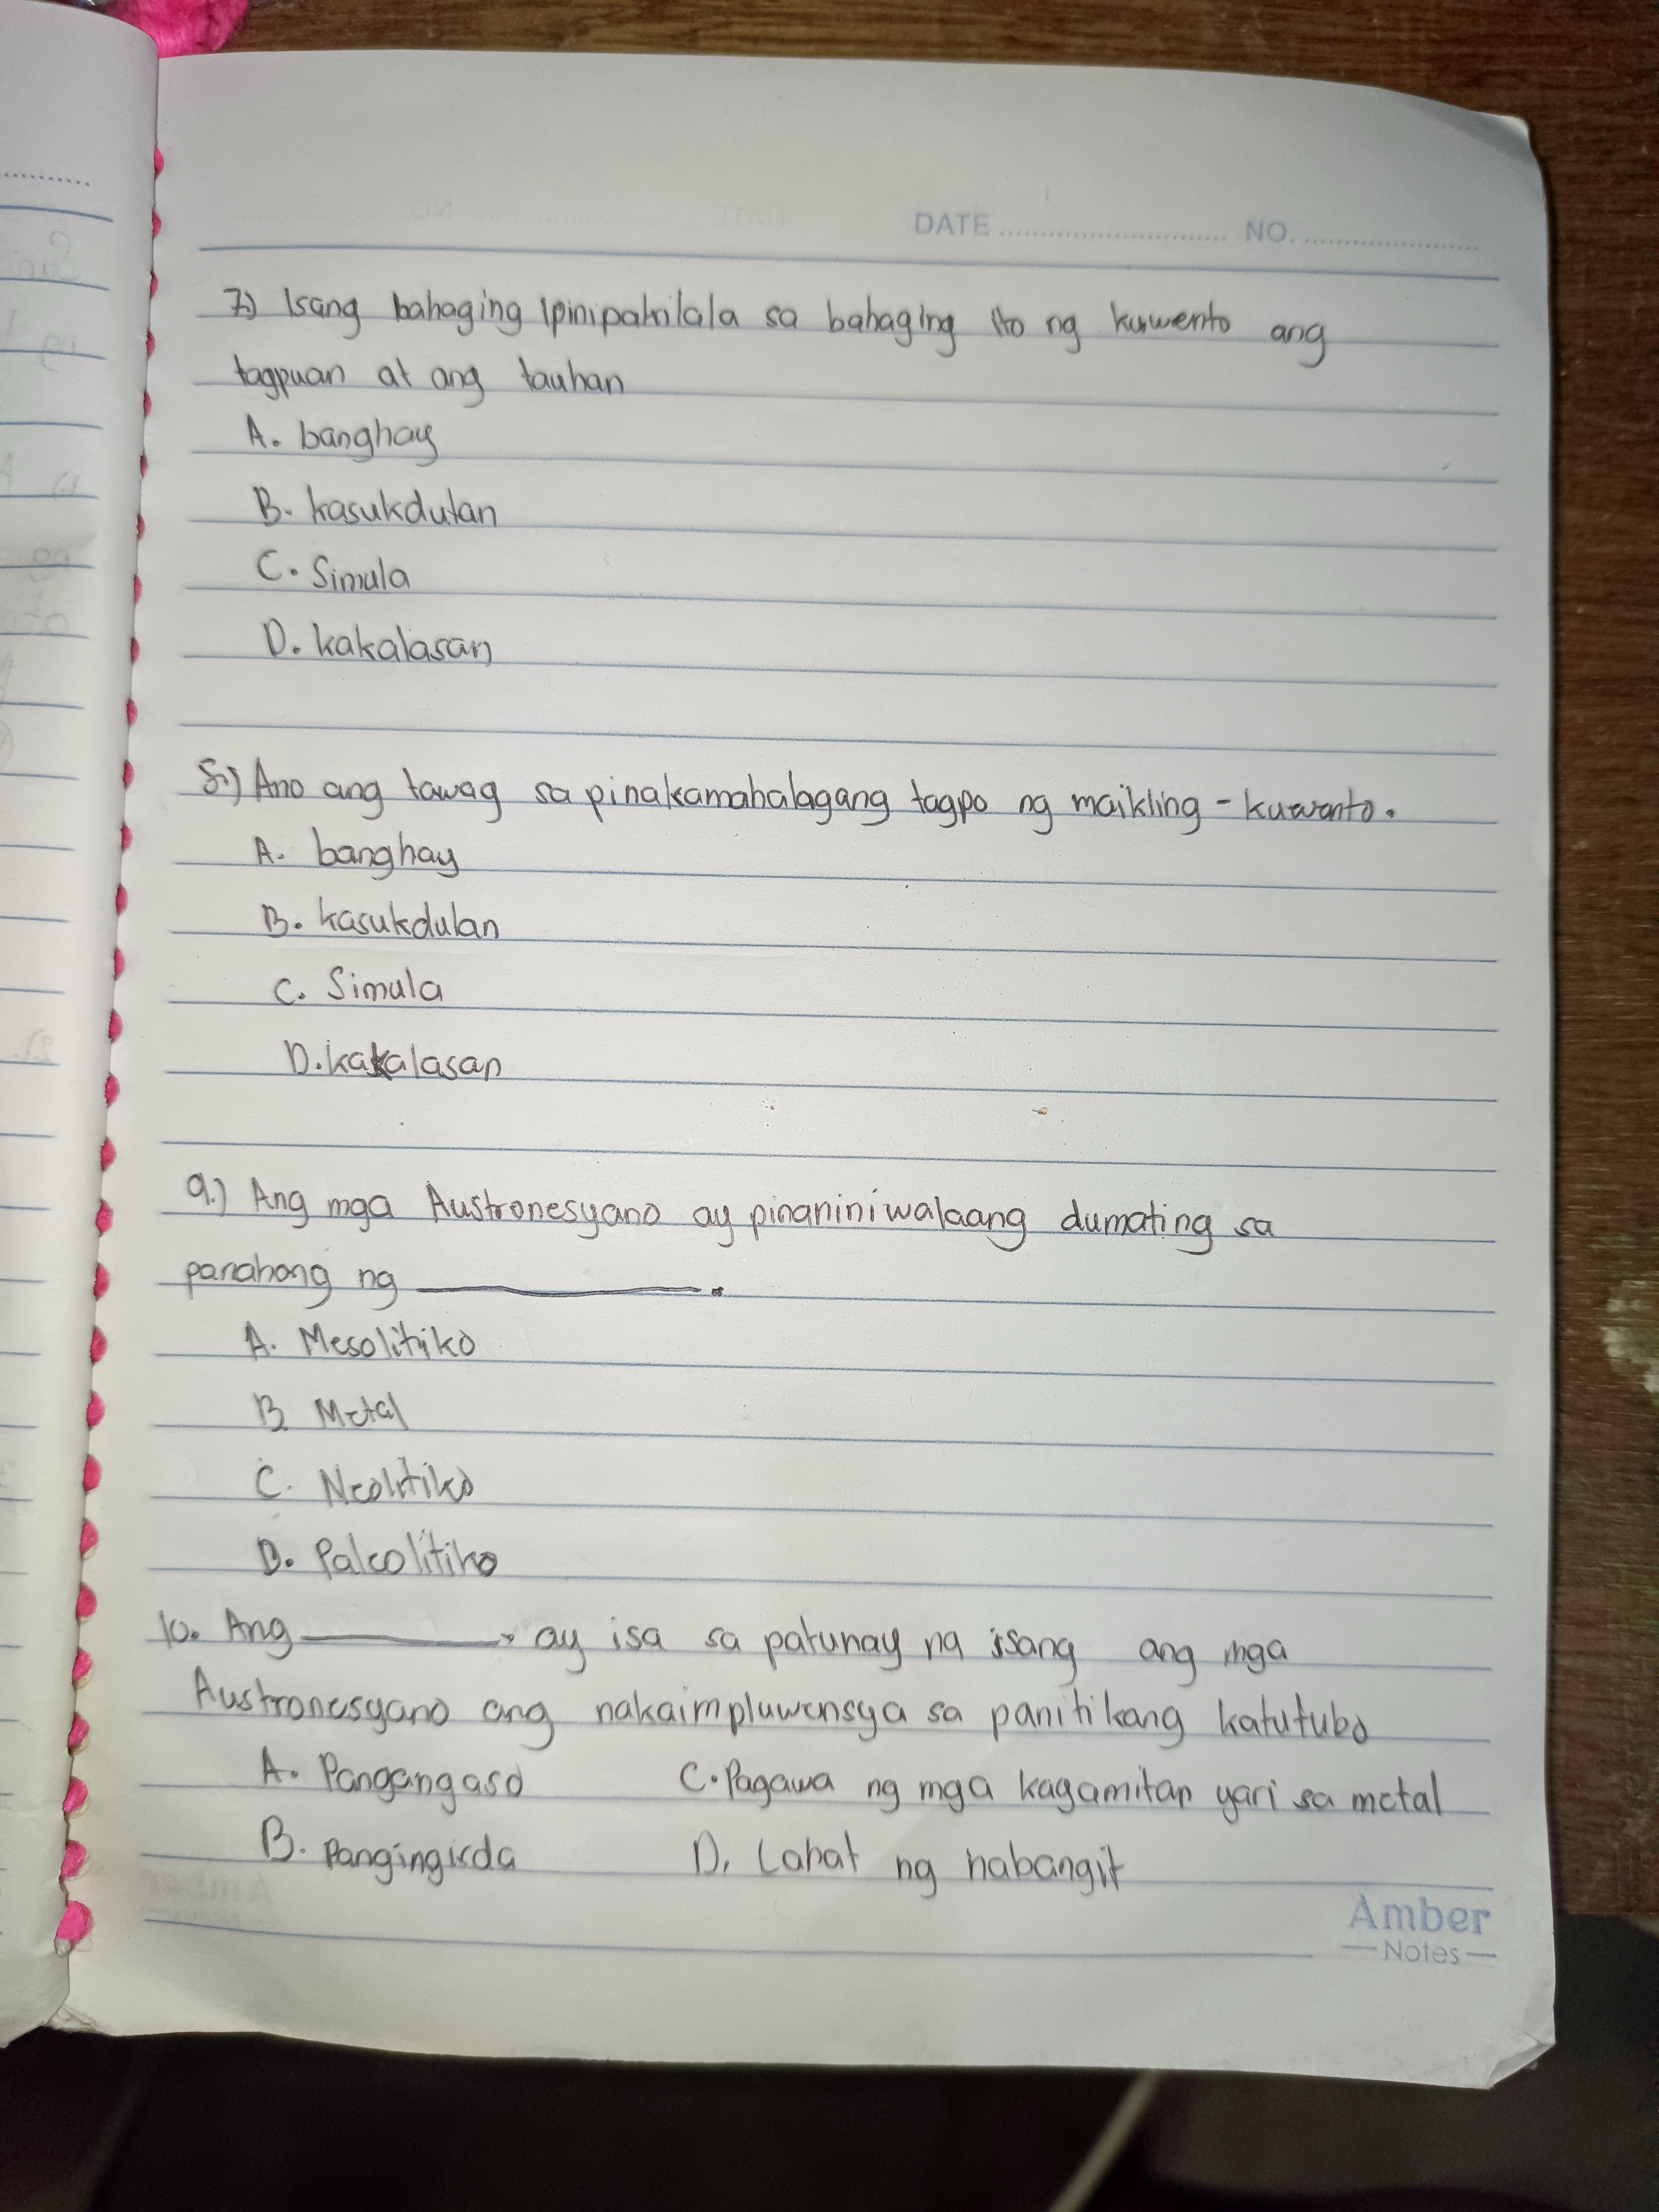 DATE NO.
7.) Isang bahaging ipinipakilala sa bahaging ito ng kuwento ang
tagpuan at ang tauhan
A. banghay
B. kasukdulan
C. Simula
D. kakalasan
8.) Ano ang tawag sa pinakamahalagang tagpo ng maikling - kuwento.
A. banghay
B. kasukdulan
C. Simula
D. kakalasan
9.) Ang mga Austronesyano ay pinaniniwalaang dumating sa
panahong ng ____________.
A. Mesolitiko
B Metal
C. Neolitiko
D. Paleolitiko
10. Ang ________ ay isa sa patunay na isang ang mga
Austronesyano ang nakaimpluwensya sa panitikang katutubo
A. Pangangaso C. Pagawa ng mga kagamitan yari sa metal
B. Pangingisda D. Lahat ng nabangit
Amber
Notes